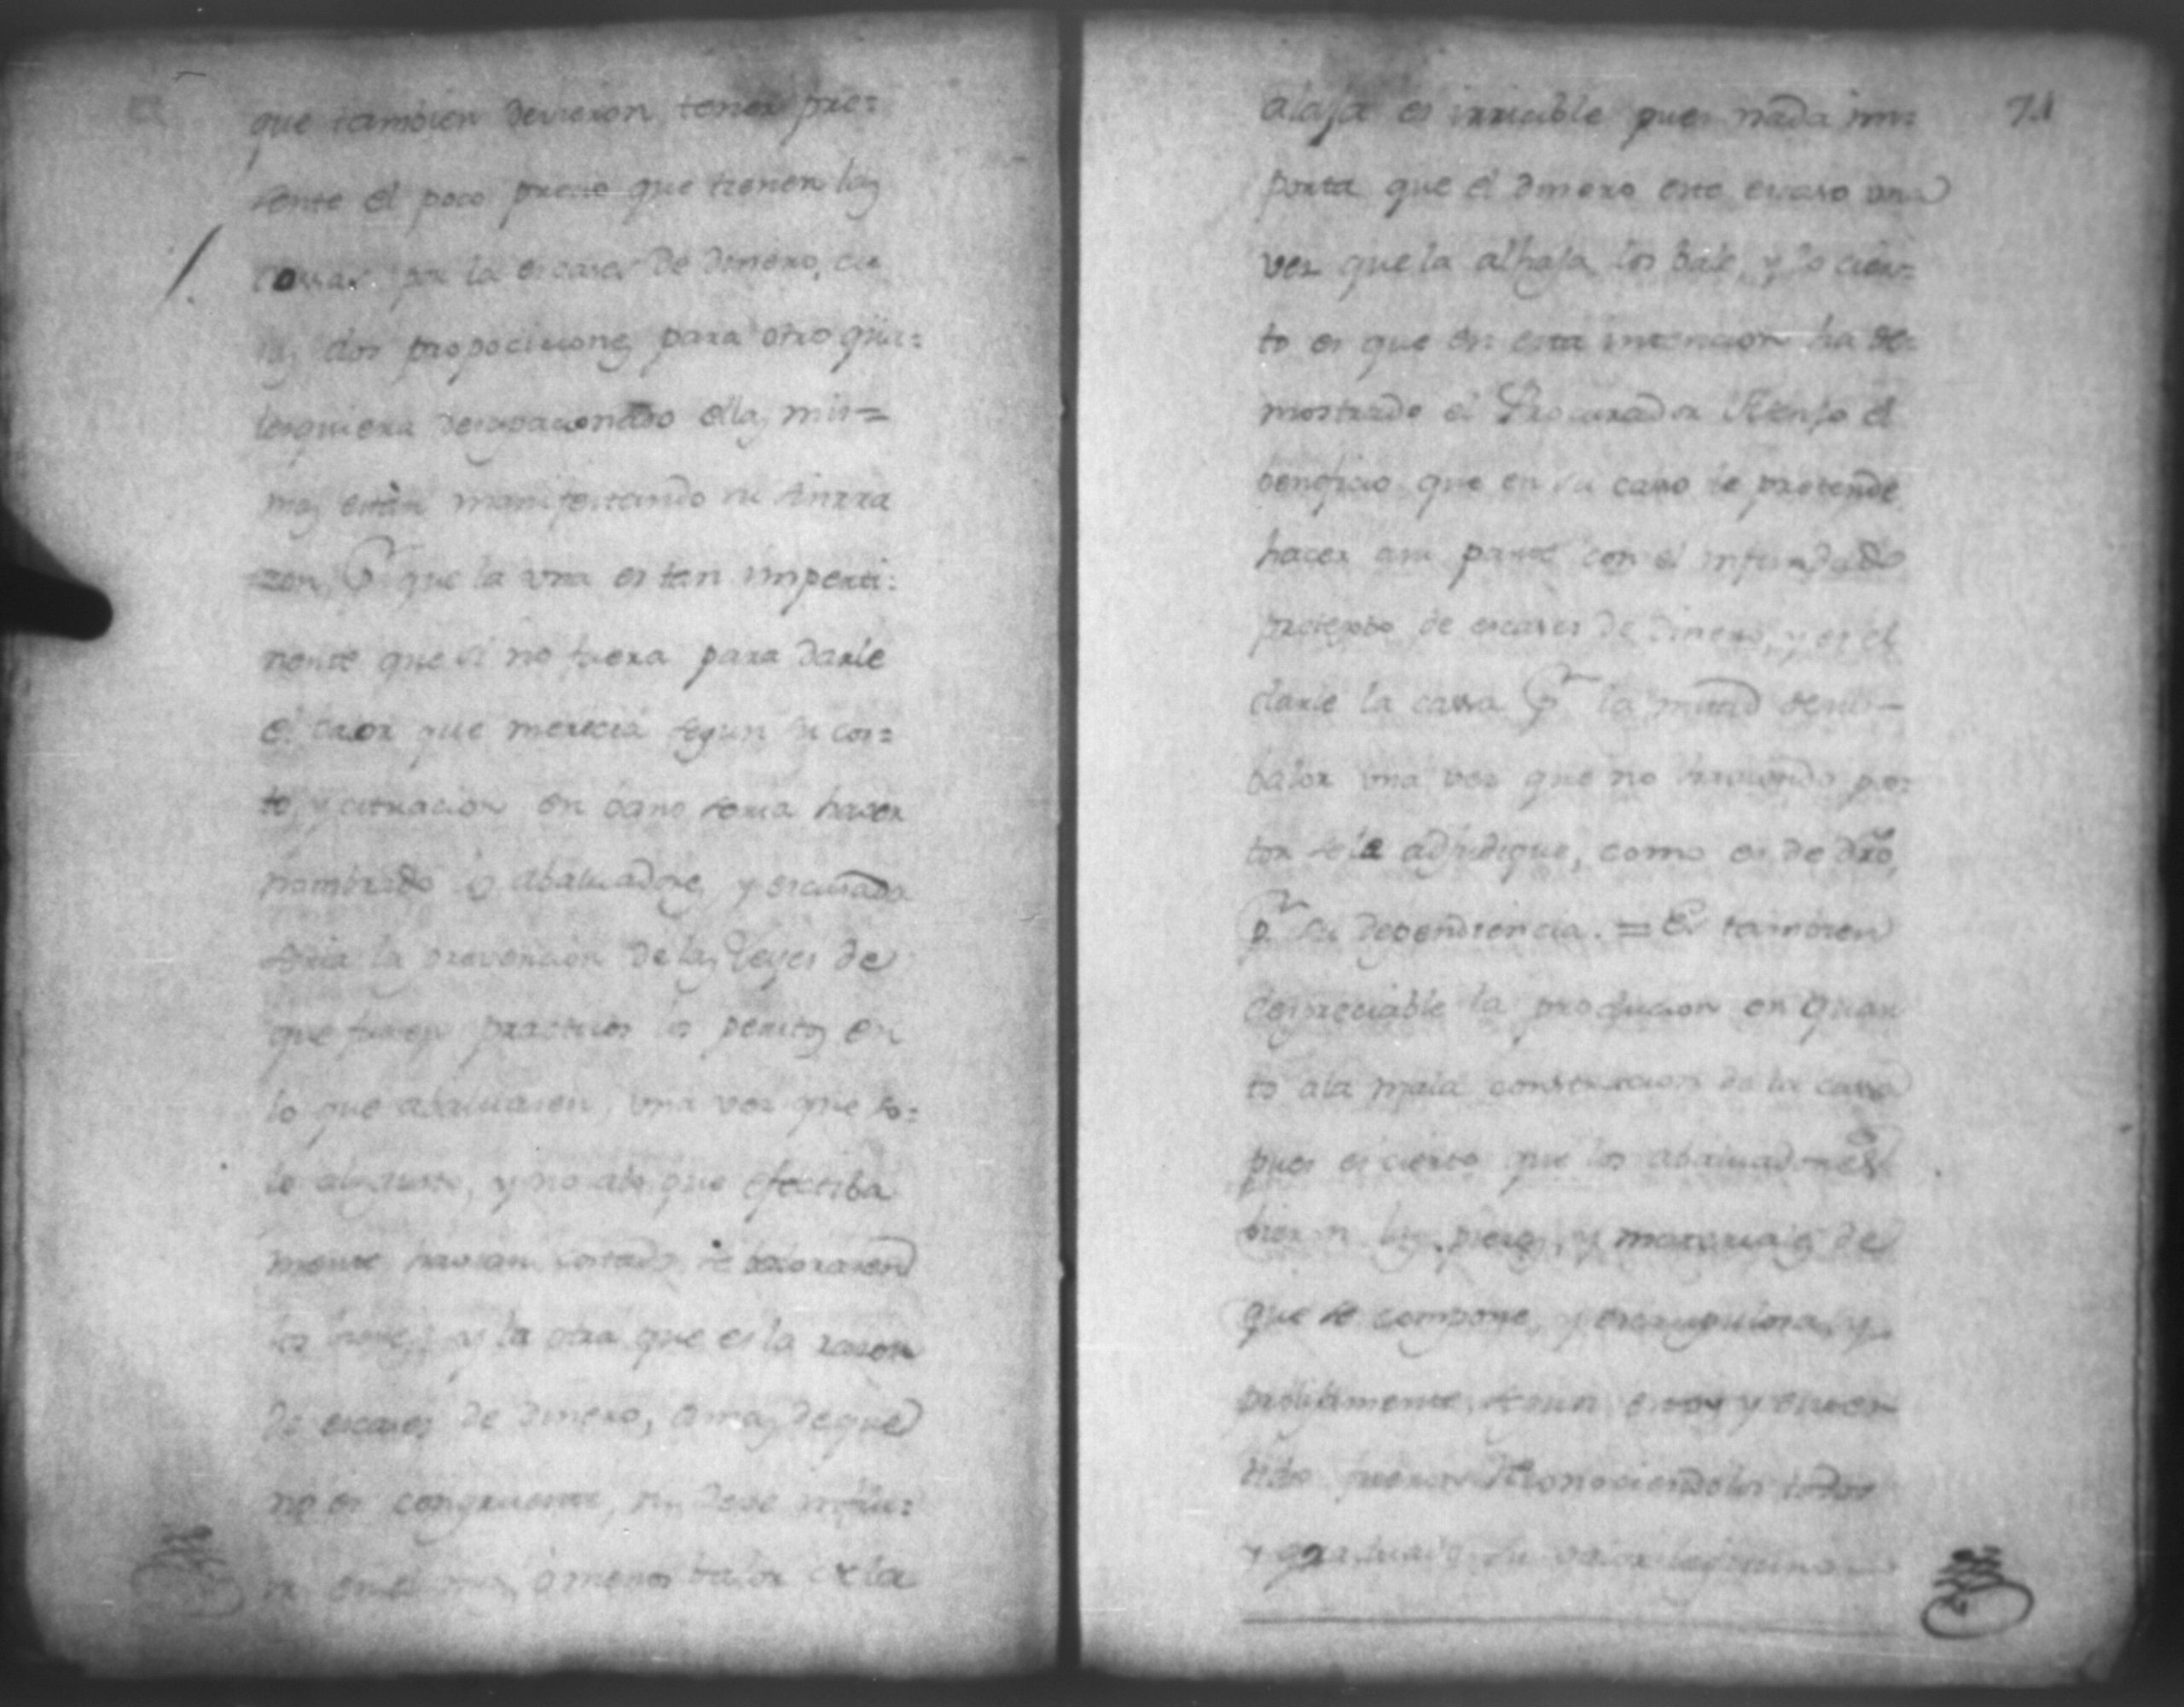 que tambien devieron tener pre=
sente el poco precio que tienen las
cassas por la escases de dinero, cu
ias dos propociciones para otro qua=
lesquiera desapacionado ellas mis=
mas están manifestando su sinrra
zon, Pr. que la una es tan imperti=
nente que si no fuera para darle
el valor que merecia segun su cos=
to, y cituacion en bano seria haver
nombrado los abaluadores, y escusada
seria la prevencion de las Leyes de
que fuesen practicos los peritos en
lo que abaluasen, una vez que so=
lo al gusto, y no alo que efectiba
mente havian costado se baloraren
los y la otra que es la razon
de escases de dinero, a mas de que
no es congruente, ni deve influi=
r en el mas, ô menos balor de la
71
alaja es irricible pues nada im=
porta que el dinero esté escaso una
vez que la alhaja los bale, y lo cier=
to es que en esta intencion ha de=
mostrado el Procurador Asenjo el
beneficio que en su caso se pretende
hacer a su parte con el infundado
pretexto de escases de dinero, y es el
darle la cassa Pr. la mitad de su
balor una vez que no haviendo pos=
tor se le adjudique, como es de dro,
pr. su dependiencia. = Es tambien
despreciable la producion en quan
to ala mala construccion de la cassa
pues es cierto que los abaluadores
bieron las piezas, y materiales de
que se compone, y
prolijamente, segun estoy y enten
dido fueron Reconociendolos todos
y su valor lexitimo